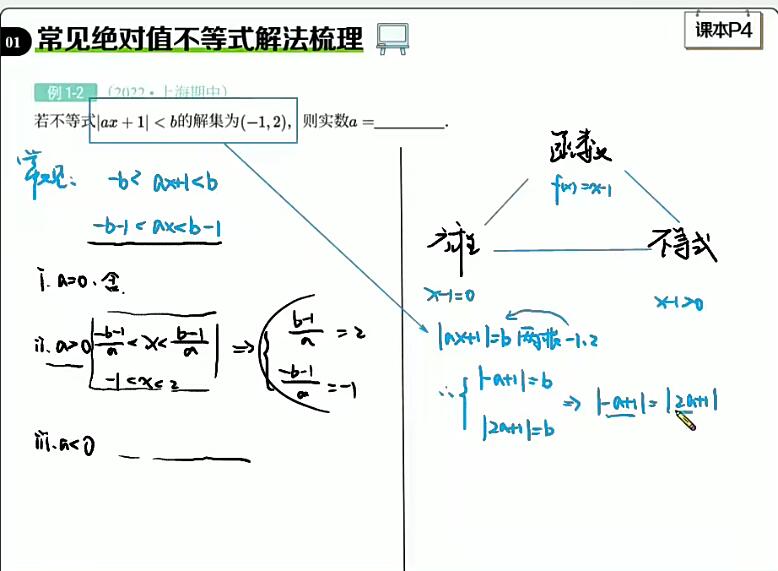 01 常见绝对值不等式解法梳理
课本P4
例1-2 (2022·上海期中)
若不等式|ax+1|<b的解集为(-1,2), 则实数a=________.
常见: -b<ax+1<b
-b-1<ax<b-1
i. a=0. 舍
ii. a>0 \frac{-b-1}{a}<x<\frac{b-1}{a} ⇒ { \frac{b-1}{a}=2
-1<x<2 \frac{-b-1}{a}=-1
iii. a<0
函数
f(x)=x-1
方程 不等式
x-1=0 x-1>0
|ax+1|=b 两根-1,2
∴ { |-a+1|=b
|2a+1|=b ⇒ |-a+1|=|2a+1|